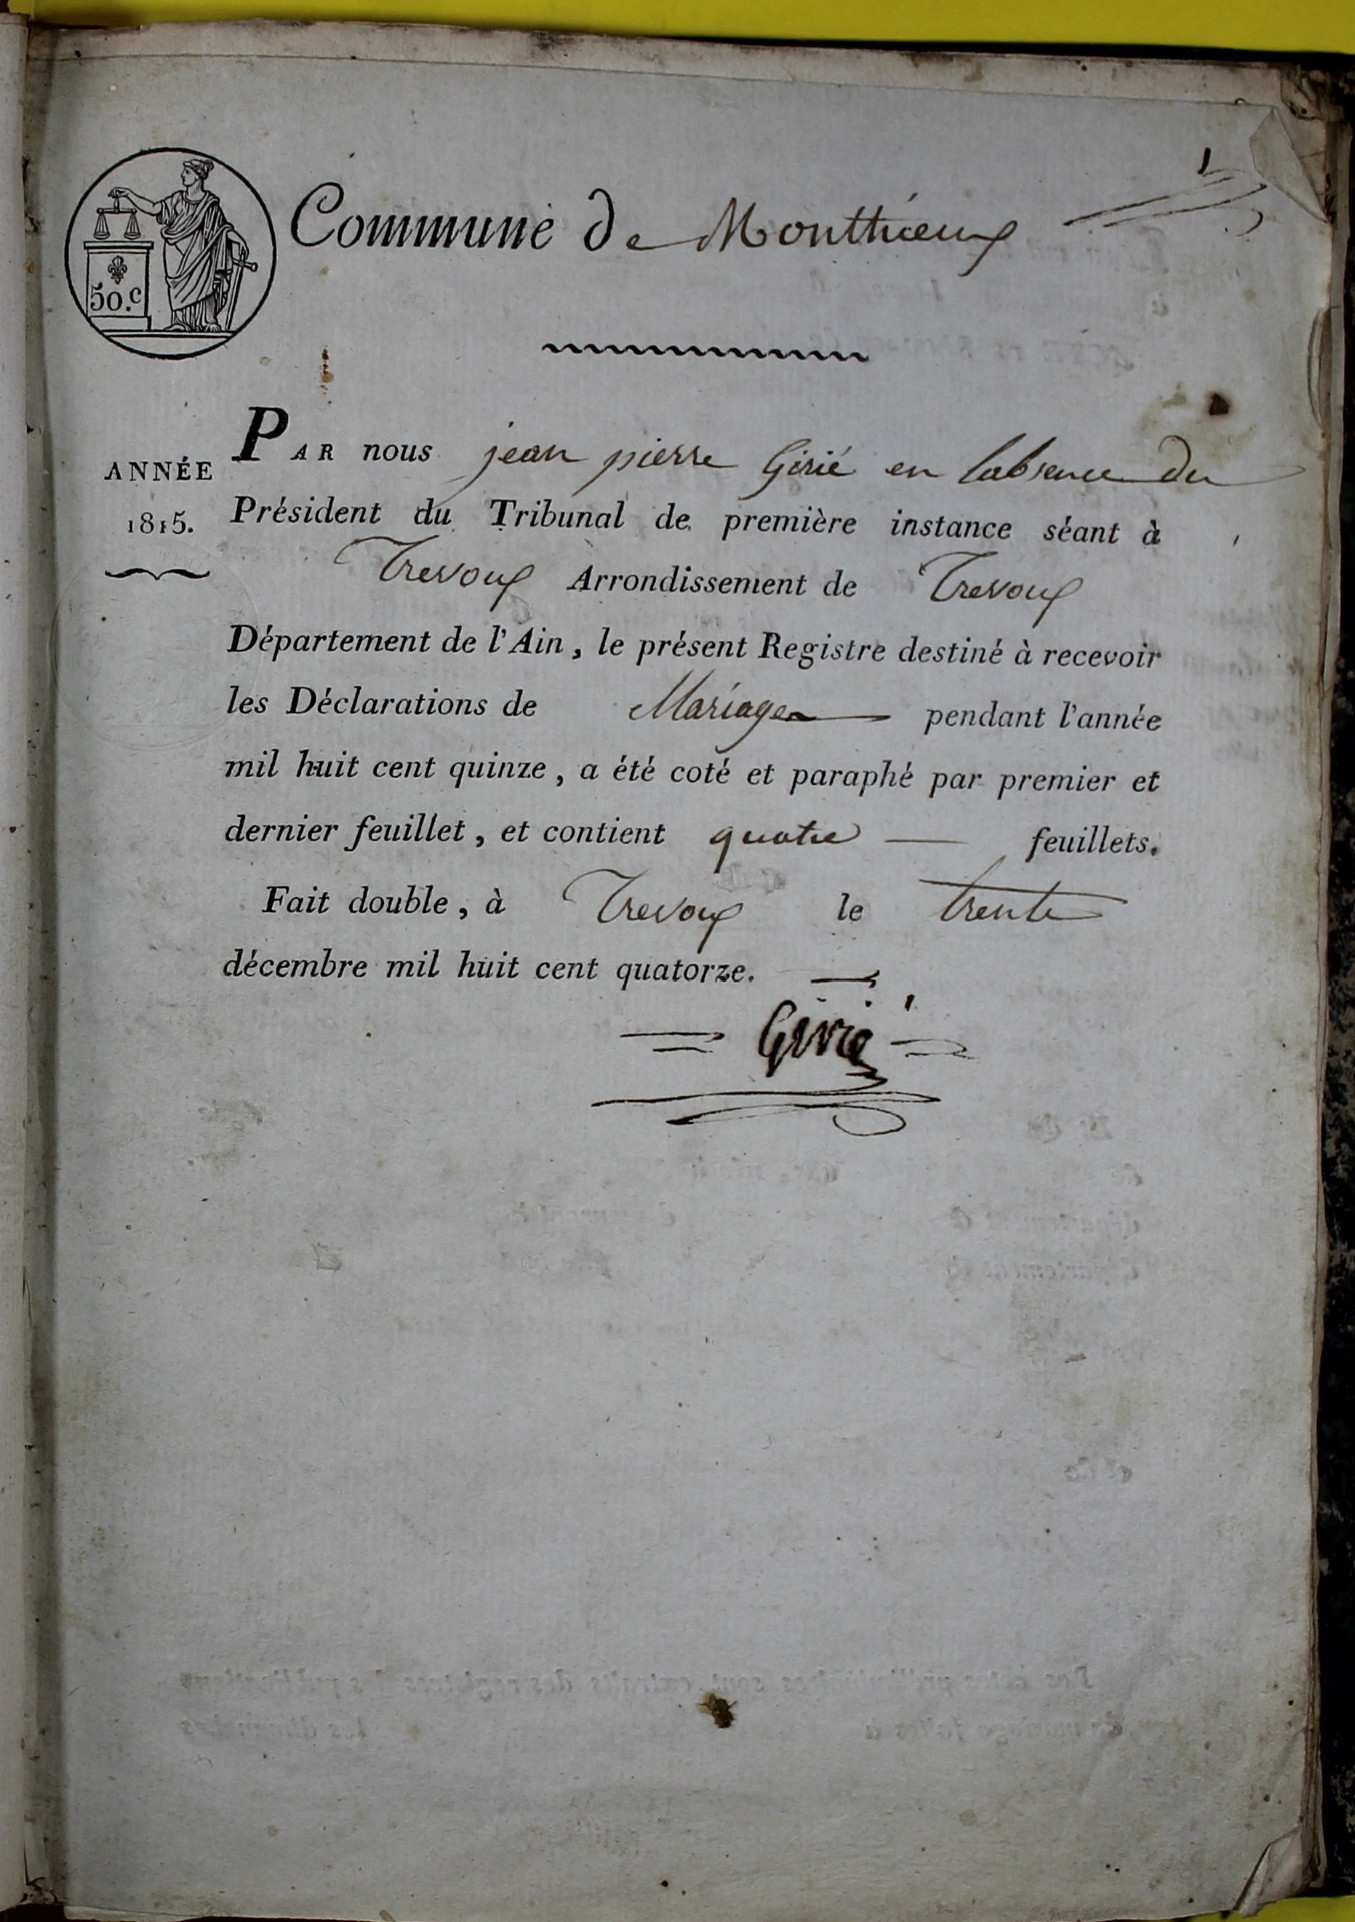 1
Commune de Monthieux
50.c
ANNÉE
1815.
PAR nous jean pierre Girié en labsence du
Président du Tribunal de première instance séant à
Trevoux Arrondissement de Trevoux
Département de l'Ain, le présent Registre destiné à recevoir
les Déclarations de Mariages pendant l'année
mil huit cent quinze, a été coté et paraphé par premier et
dernier feuillet, et contient quatre feuillets.
Fait double, à Trevoux le trente
décembre mil huit cent quatorze.
Girié